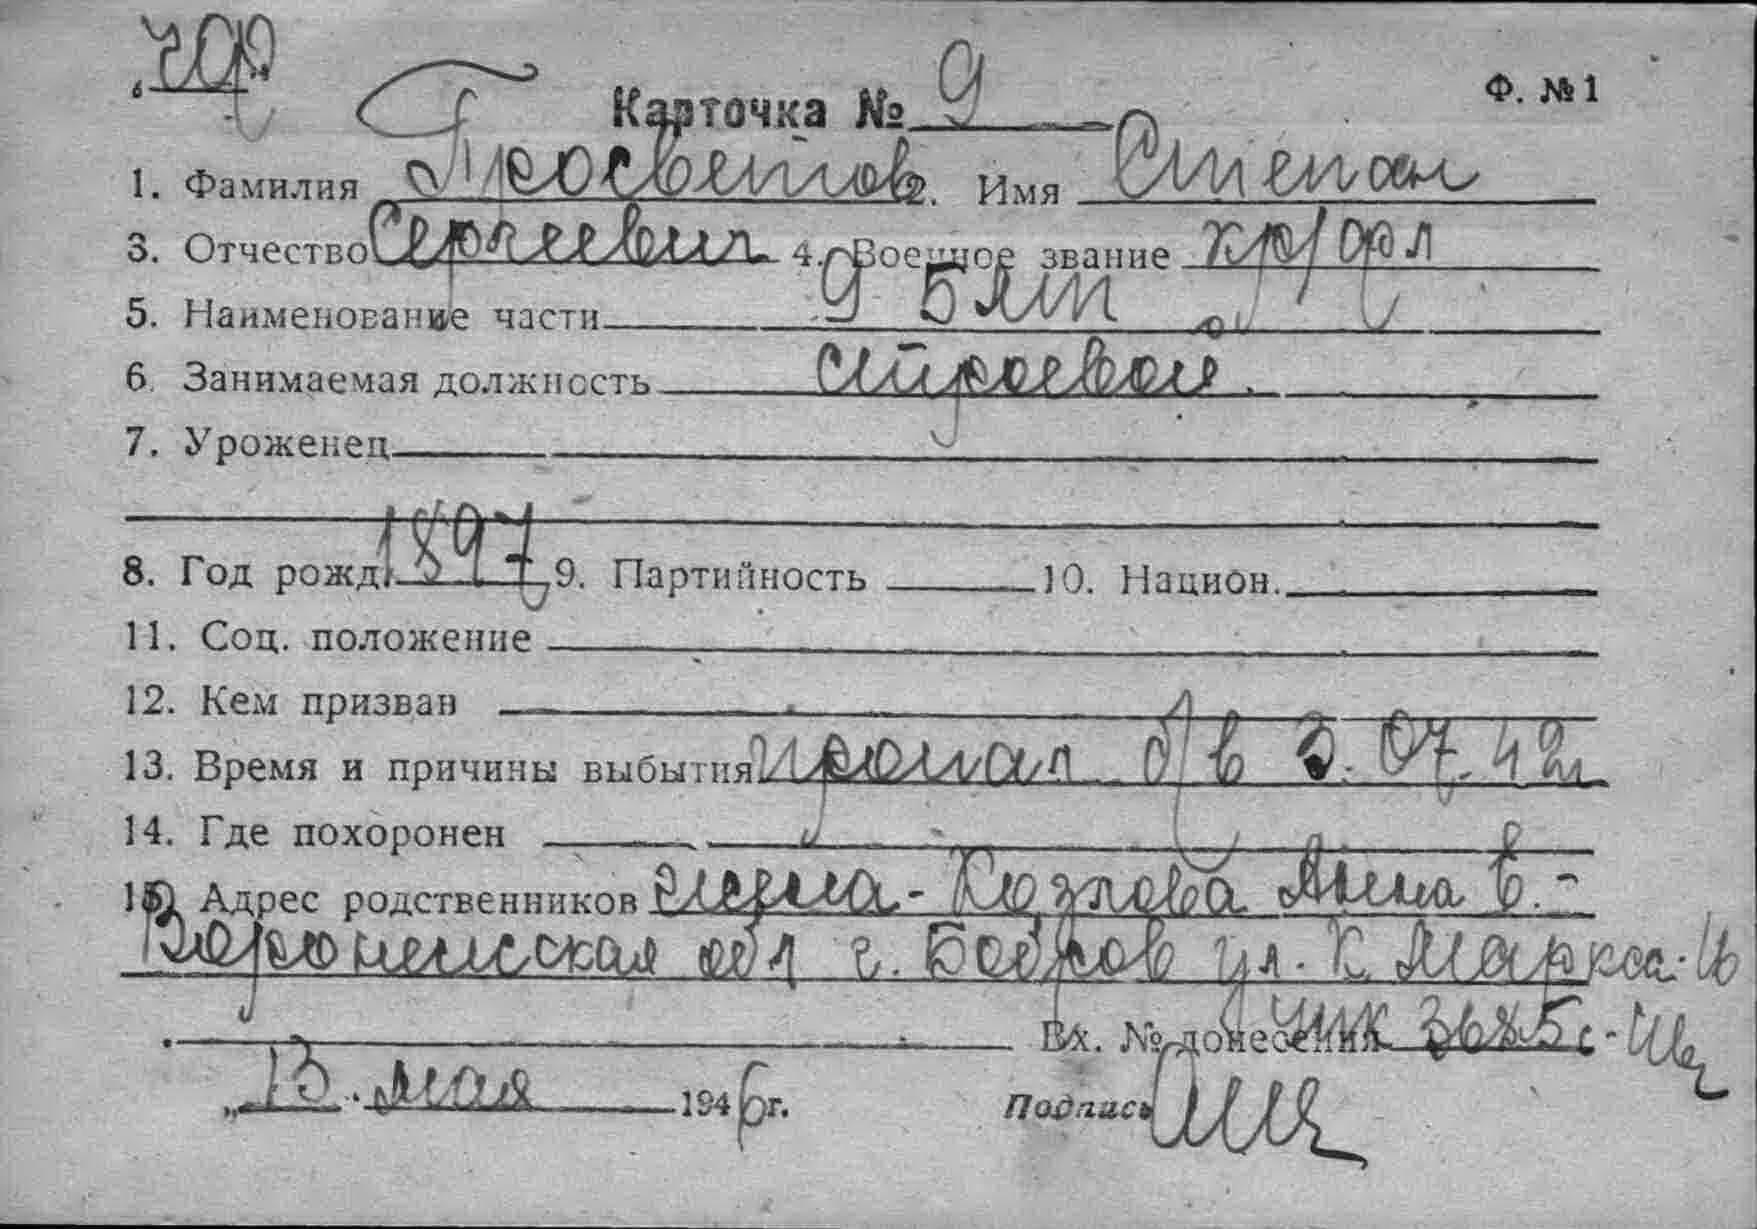 ЧФ
Карточка № 9 Ф. № 1
1. Фамилия Просветов 2. Имя Степан
3. Отчество Сергеевич 4. Военное звание кр/фл
5. Наименование части 9 БМП
6. Занимаемая должность строевой.
7. Уроженец
8. Год рожд. 1897 9. Партийность 10. Национ.
11. Соц. положение
12. Кем призван
13. Время и причины выбытия пропал б/в 3.07.42г
14. Где похоронен
15. Адрес родственников жена - Козлова Анна Е. -
Воронежская обл г. Бобров ул. К Маркса -
Вх. № донесения 3685с
„13". мая 1946 г. Подпись